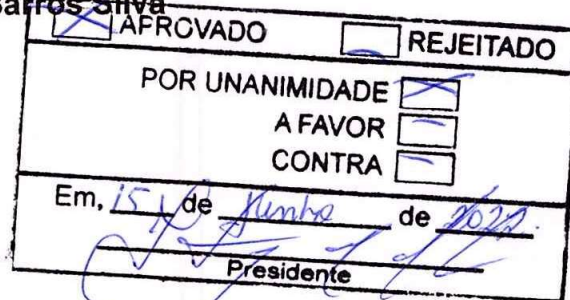 Barros Silva
APROVADO REJEITADO
POR UNANIMIDADE
A FAVOR
CONTRA
Em, 15 de Junho de 2022.
Presidente